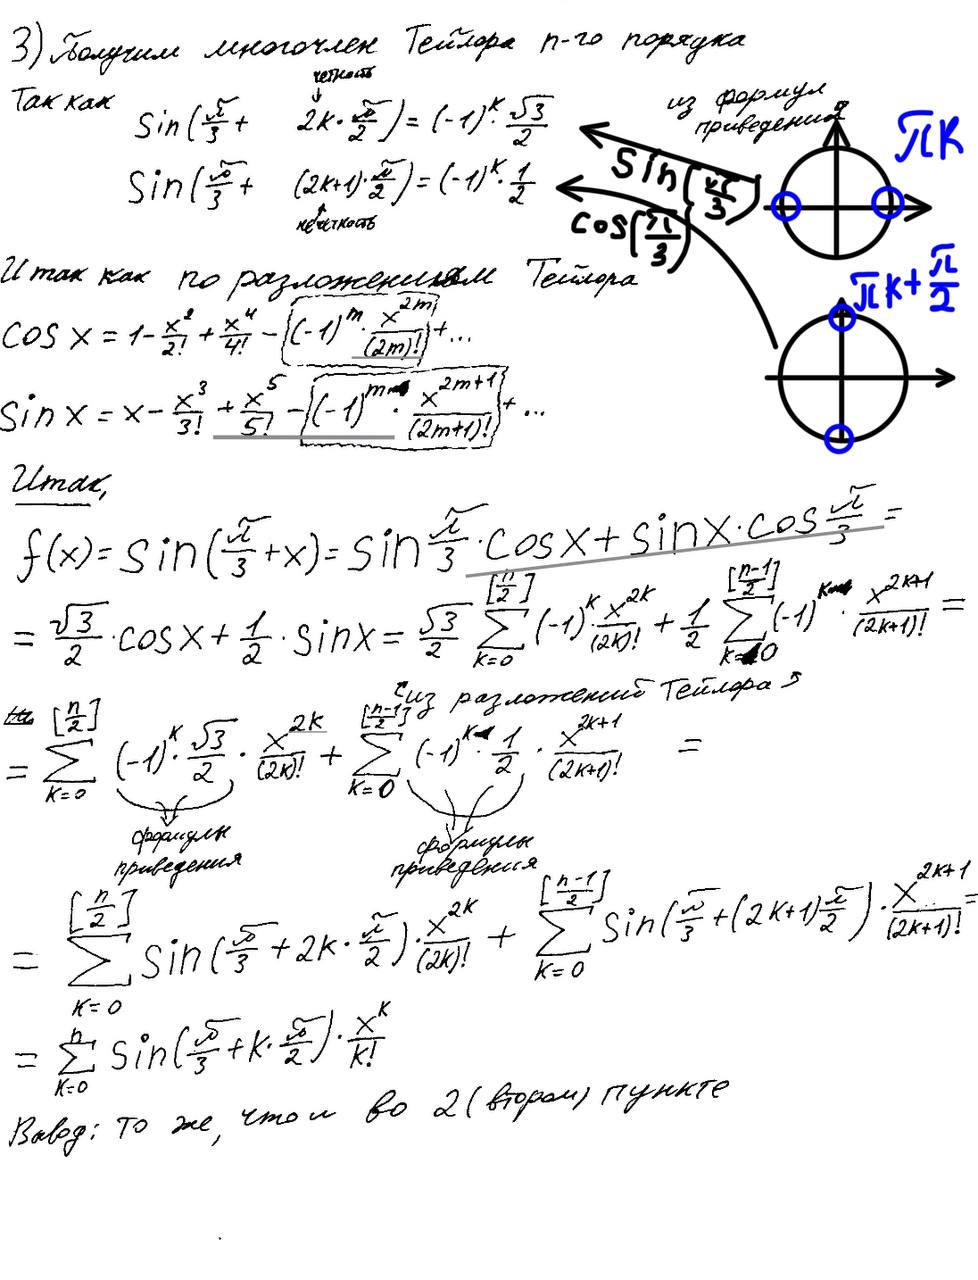 3) Получим многочлен Тейлора n-го порядка
четность
Так как sin(π/3 + 2k·π/2) = (-1)^k · √3/2
из формул приведения
sin(π/3)
πk
sin(π/3 + (2k+1)·π/2) = (-1)^k · 1/2
нечетность
cos(π/3)
И так как по разложениям Тейлора
πk + π/2
cos x = 1 - x²/2! + x⁴/4! - (-1)^m · x^(2m)/(2m)! + ...
sin x = x - x³/3! + x⁵/5! - (-1)^m · x^(2m+1)/(2m+1)! + ...
Итак,
f(x) = sin(π/3 + x) = sin π/3 · cos x + sin x · cos π/3 =
= √3/2 · cos x + 1/2 · sin x = √3/2 ∑_{k=0}^{[n/2]} (-1)^k x^(2k)/(2k)! + 1/2 ∑_{k=0}^{[(n-1)/2]} (-1)^k · x^(2k+1)/(2k+1)! =
из разложений Тейлора
= ∑_{k=0}^{[n/2]} (-1)^k · √3/2 · x^(2k)/(2k)! + ∑_{k=0}^{[(n-1)/2]} (-1)^k · 1/2 · x^(2k+1)/(2k+1)! =
формулы приведения
формулы приведения
= ∑_{k=0}^{[n/2]} sin(π/3 + 2k·π/2) · x^(2k)/(2k)! + ∑_{k=0}^{[(n-1)/2]} sin(π/3 + (2k+1)π/2) · x^(2k+1)/(2k+1)! =
= ∑_{k=0}^{n} sin(π/3 + k·π/2) · x^k/k!
Вывод: то же, что и во 2 (втором) пункте